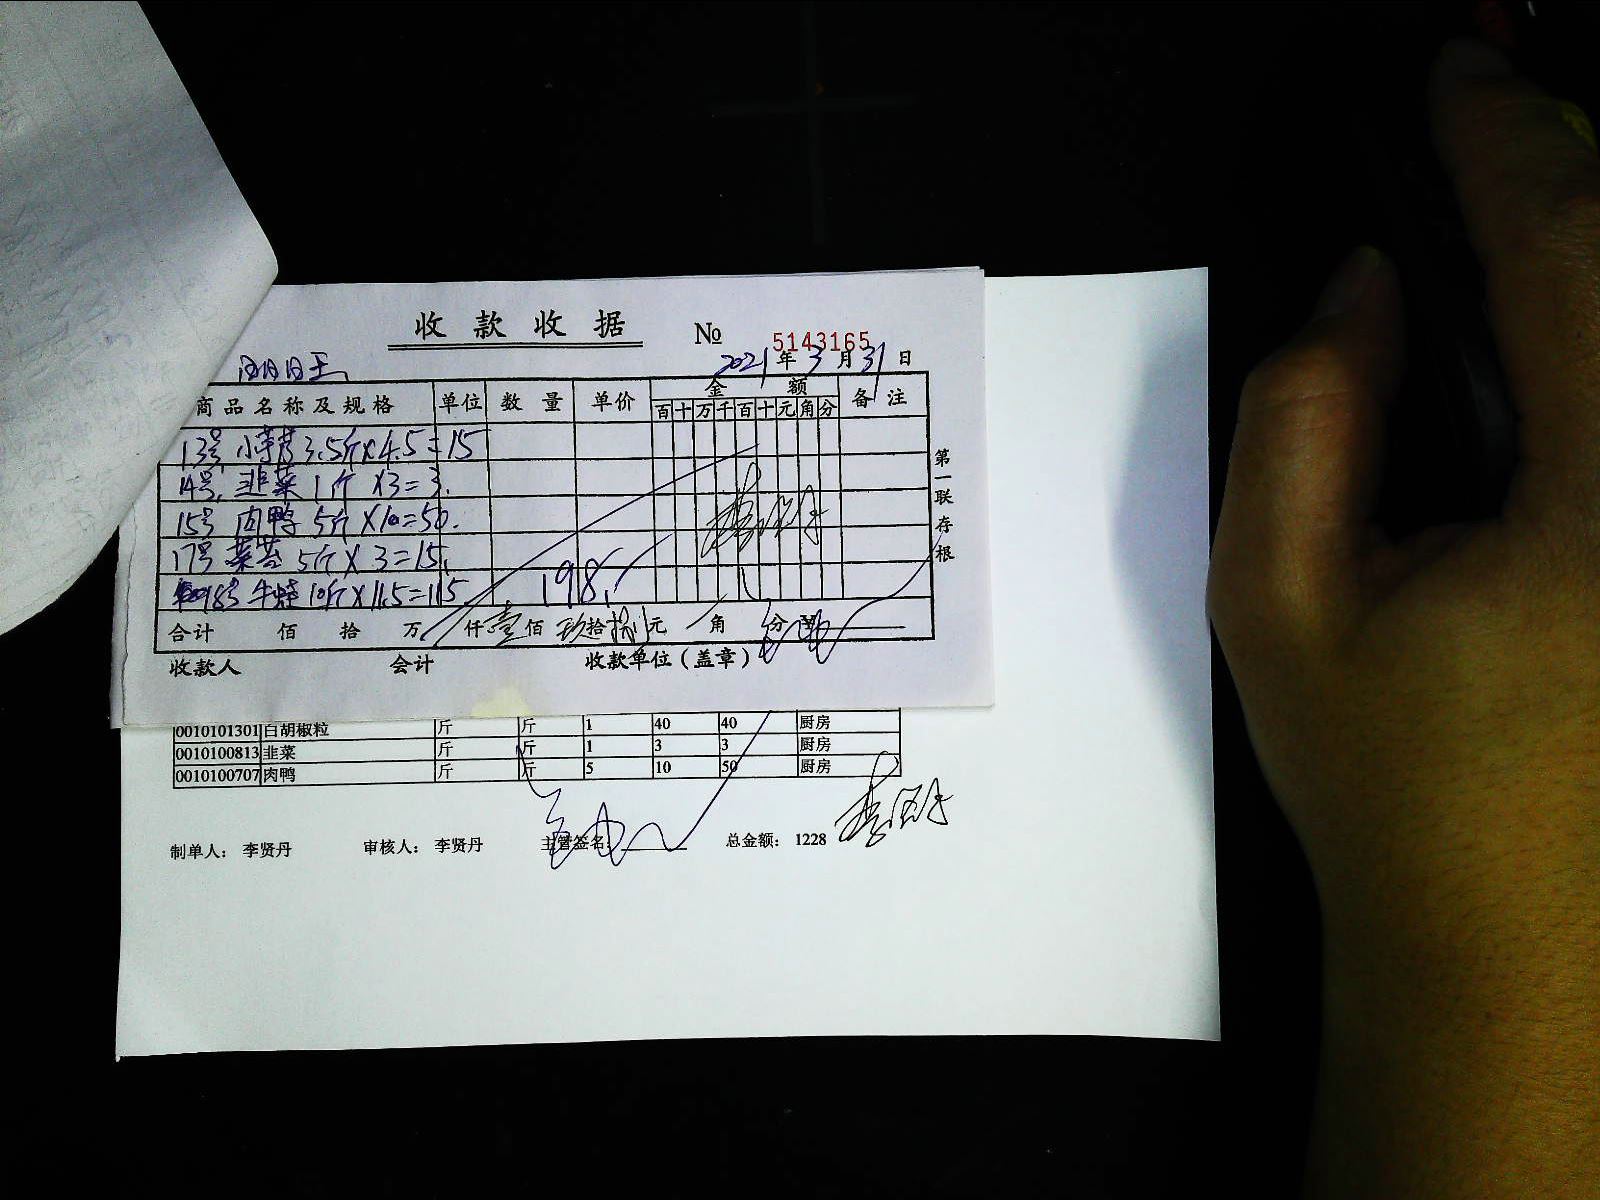 收款收据 № 5143165
2021年3月31日
商品名称及规格 单位 数量 单价 金额 备注
百十万千百十元角分
13号 小 3.5斤×4.5=15
14号 韭菜 1斤 ×3=3.
15号 肉鸭 5斤 ×10=50.
17号 菜苔 5斤 × 3=15.
18号 牛 10斤×11.5=115
198.
合计 佰 拾 万 仟壹佰玖拾捌元 角 分
收款人 会计 收款单位（盖章）
第一联存根
0010101301 白胡椒粒 斤 斤 1 40 40 厨房
0010100813 韭菜 斤 斤 1 3 3 厨房
0010100707 肉鸭 斤 斤 5 10 50 厨房
制单人： 李贤丹 审核人： 李贤丹 主管签名： 总金额： 1228